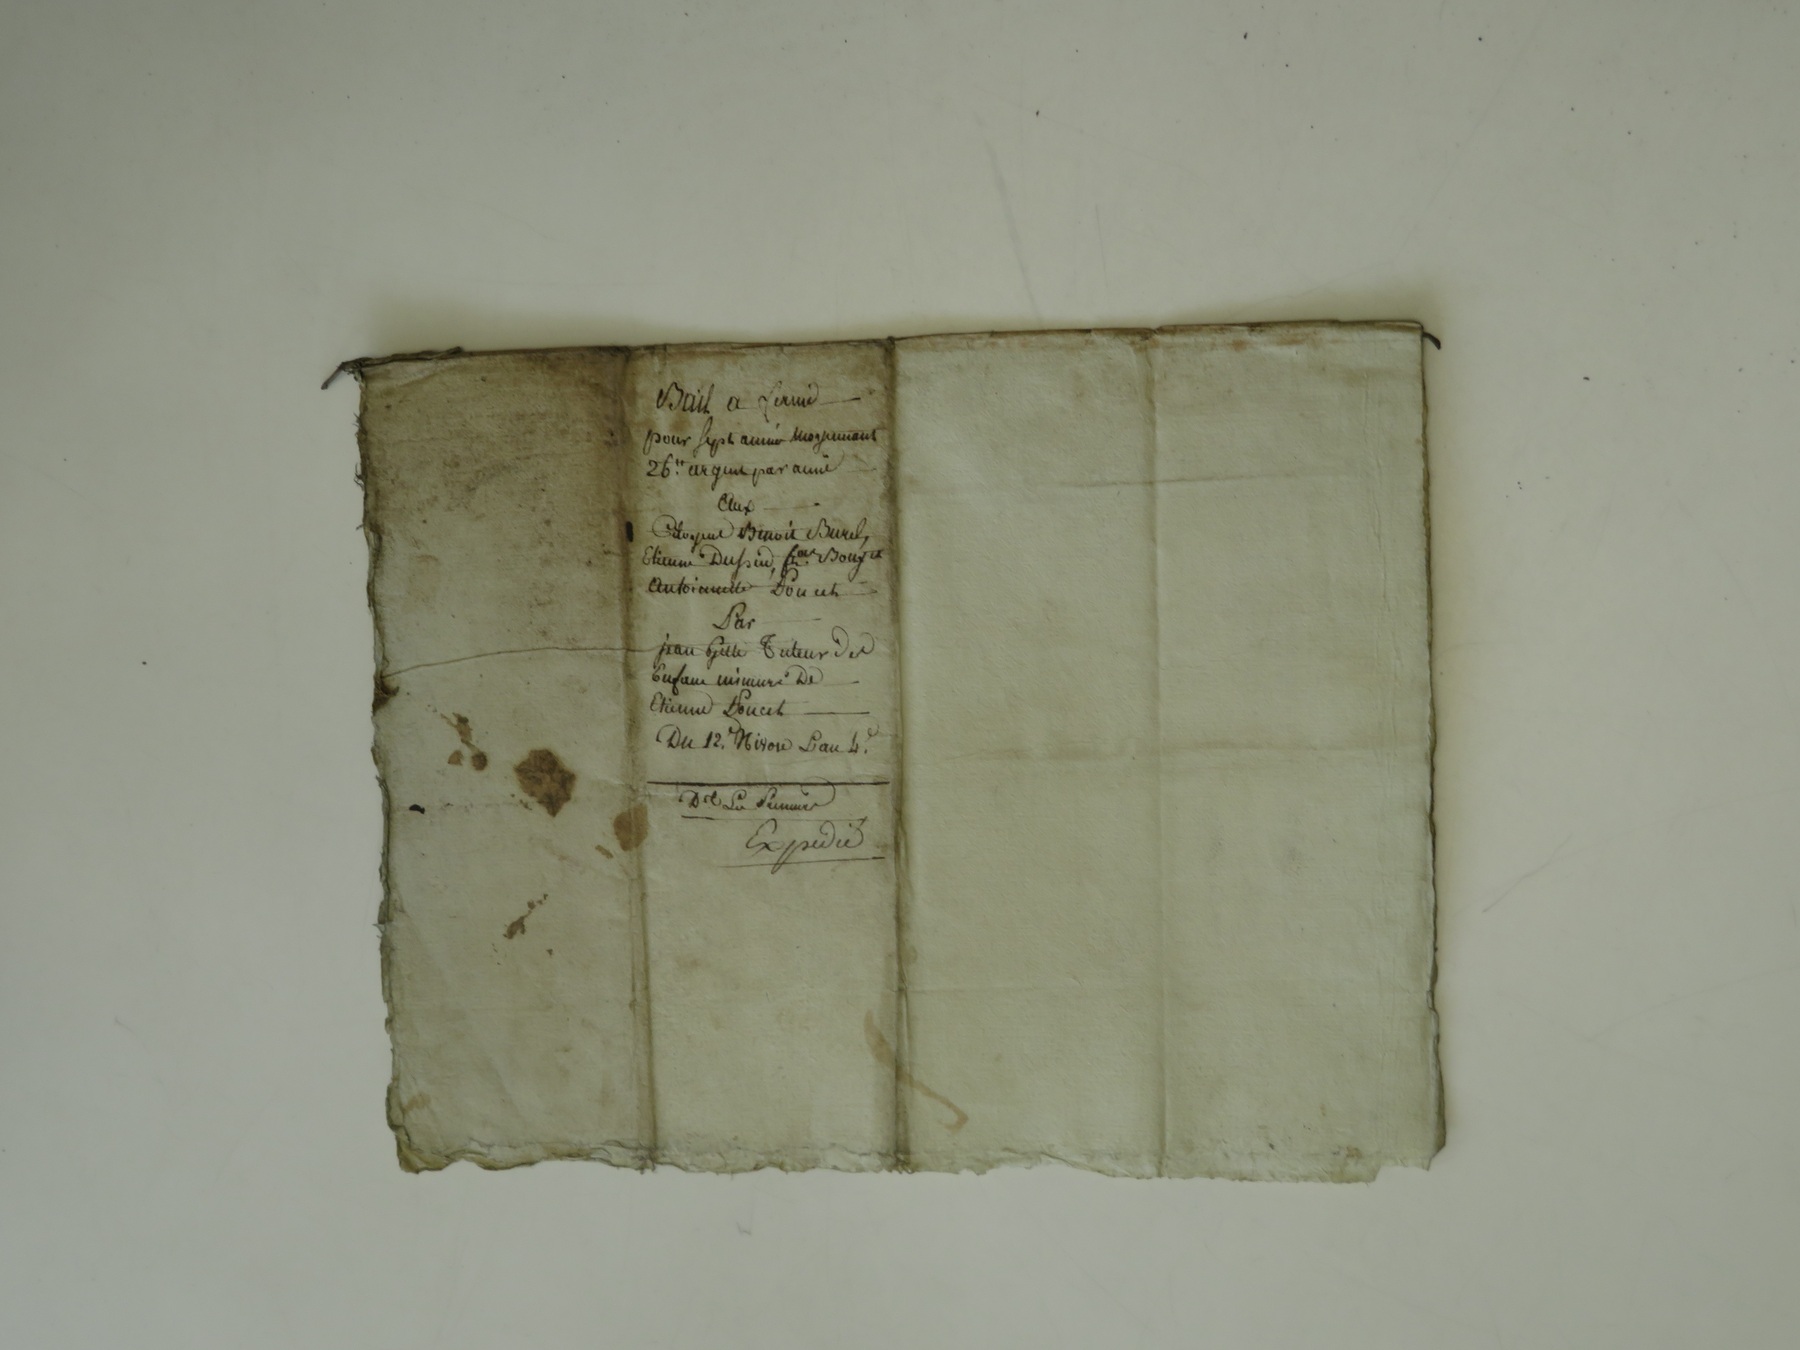 Bail a ferme
pour sept année moyennant
26 ₶ argent par année
Aux
Citoyens Benoit Burel,
Etienne Dussud,
Antoinette Poncet
Par
jean Gille Tuteur des
Enfans mineurs De
Etienne Poncet
Du 12.e Nivose L'an 4.e
Expedié